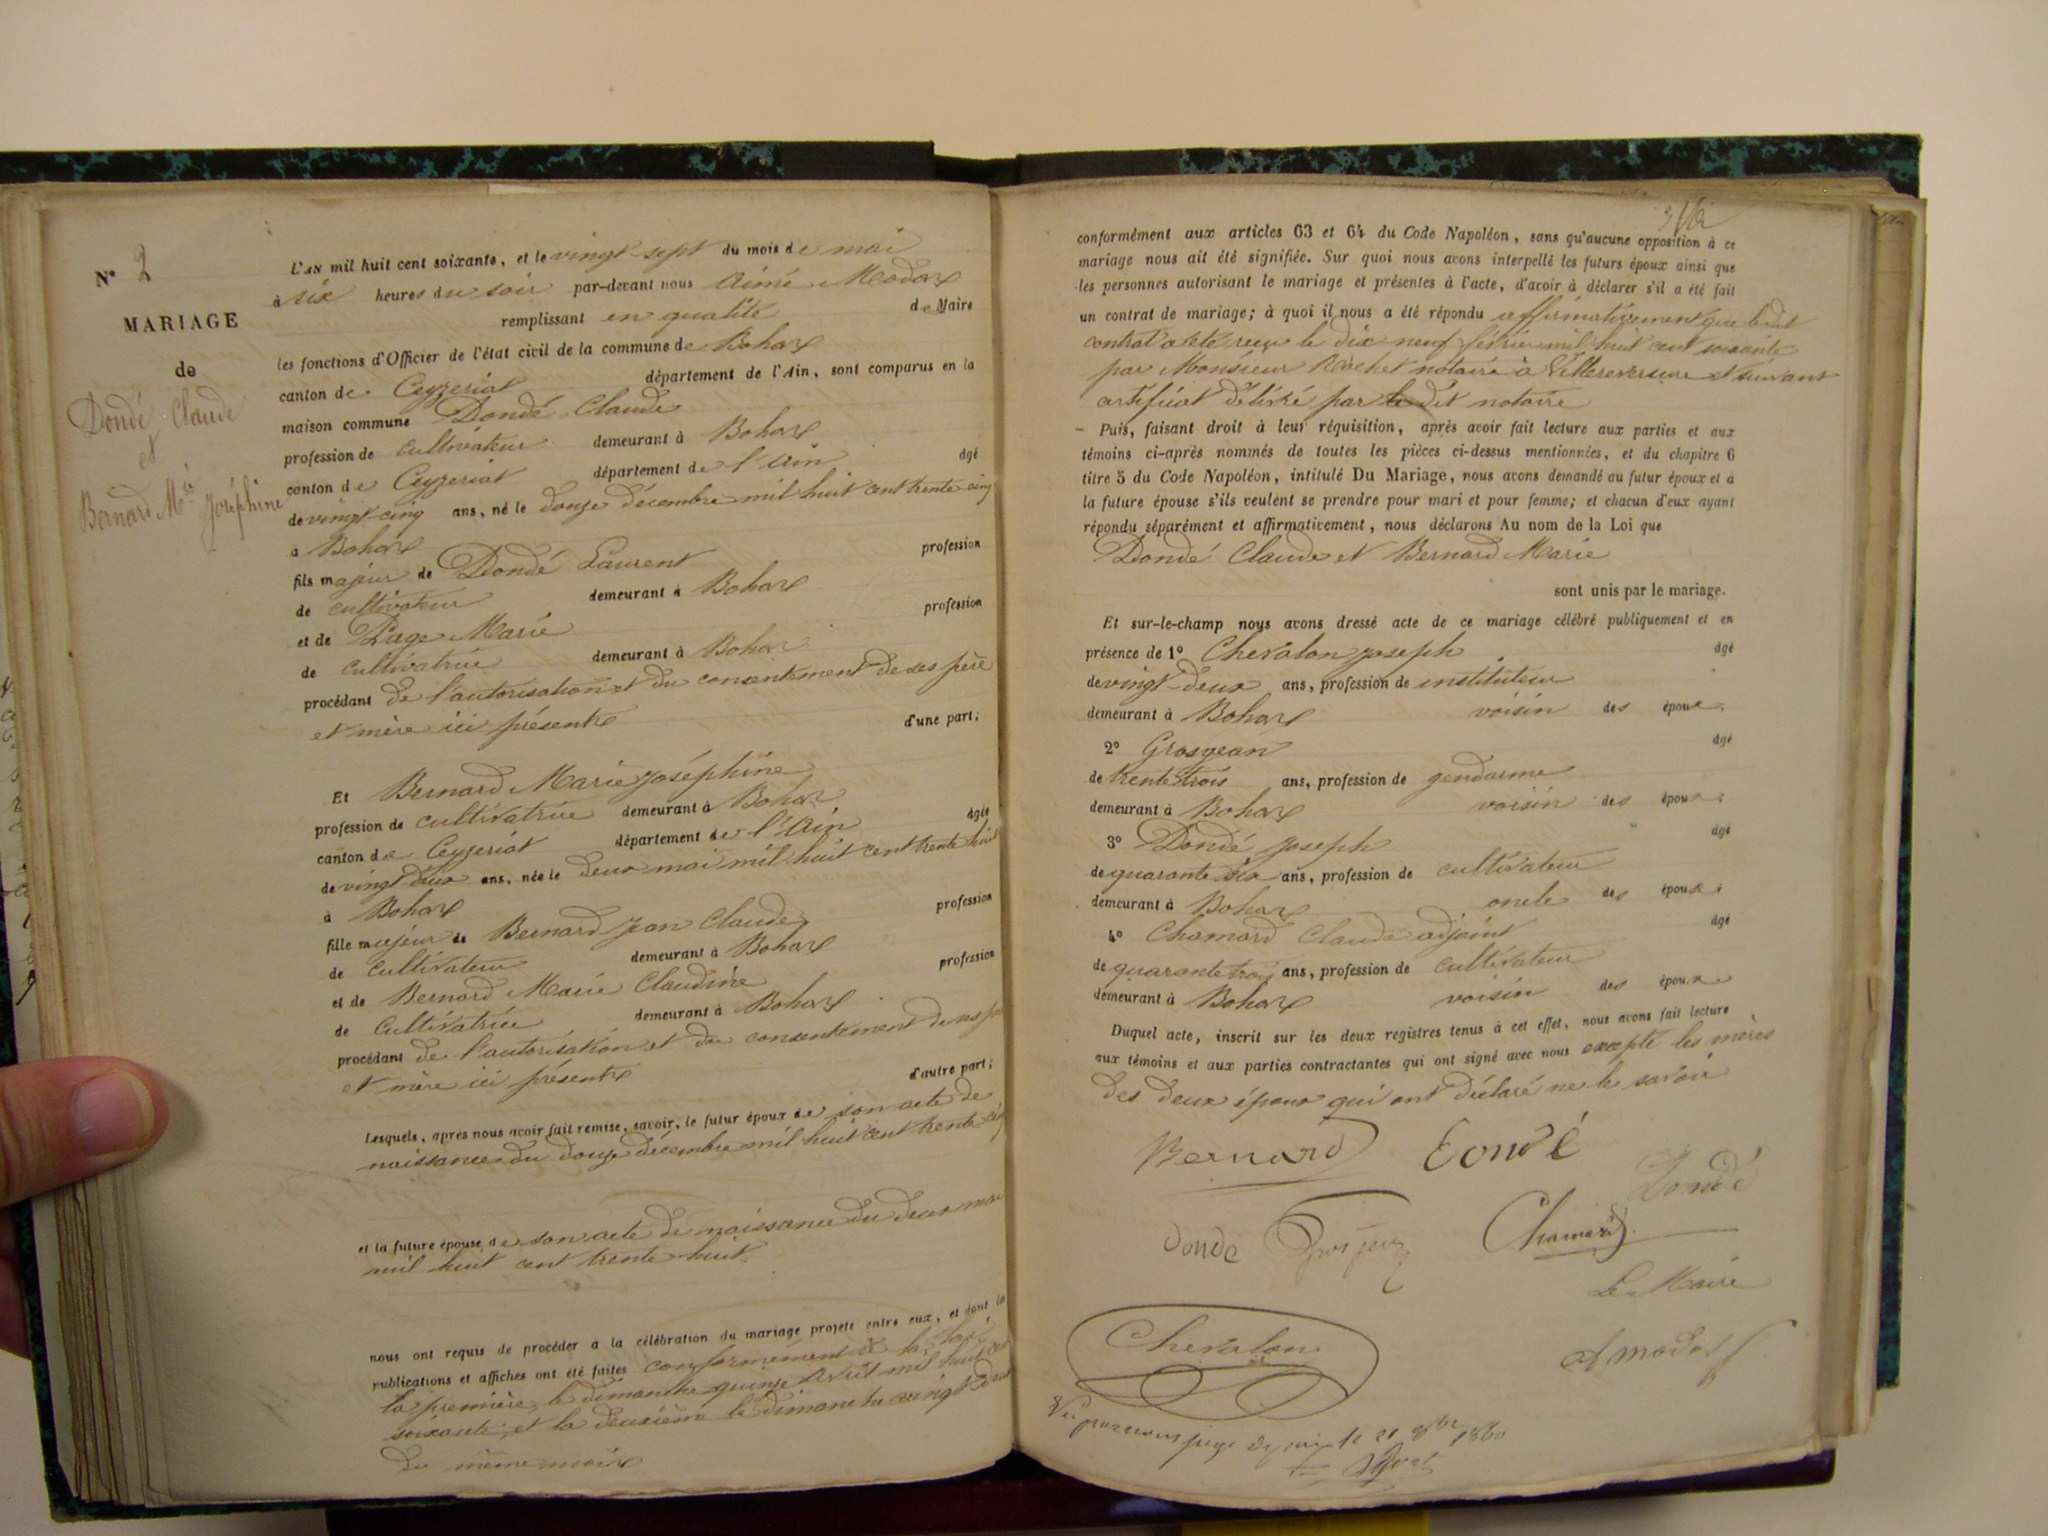 N° 2
MARIAGE
de
Dondé Claude
et
Bernard Mie Joséphine
L'AN mil huit cent soixante, et le vingt-sept du mois de mai
à six heures du soir par-devant nous Aimé Modas
remplissant en qualité de Maire
les fonctions d'Officier de l'état civil de la commune de Bohas
canton de Ceyzeriat département de l'Ain, sont comparus en la
maison commune Dondé Claude
profession de cultivateur demeurant à Bohas
canton de Ceyzeriat département de l'Ain âgé
de vingt-cinq ans, né le douze décembre mil huit cent trente cinq
à Bohas
fils majeur de Dondé Laurent profession
de cultivateur demeurant à Bohas
et de Page Marie profession
de cultivatrice demeurant à Bohas
procédant de l'autorisation et du consentement de ses père
et mère ici présents d'une part;
Et Bernard Marie Joséphine
profession de cultivatrice demeurant à Bohas
canton de Ceyzeriat département de l'Ain âgée
de vingt deux ans, née le deux mai mil huit cent trente huit
à Bohas
fille majeur de Bernard Jean Claude profession
de cultivateur demeurant à Bohas
et de Bernard Marie Claudine profession
de Cultivatrice demeurant à Bohas
procédant de l'autorisation et du consentement de ses père
et mère ici présents d'autre part;
Lesquels, après nous avoir fait remise, savoir, le futur époux de son acte de
naissance du douze décembre mil huit cent trente-cinq
et la future épouse de son acte de naissance du deux mai
mil huit cent trente huit.
nous ont requis de procéder à la célébration du mariage projeté entre eux, et dont les
publications et affiches ont été faites conformément à la loi,
la première le dimanche quinze avril mil huit cent
soixante, et la deuxième le dimanche vingt deux
du même mois
conformément aux articles 63 et 64 du Code Napoléon, sans qu'aucune opposition à ce
mariage nous ait été signifiée. Sur quoi nous avons interpellé les futurs époux ainsi que
les personnes autorisant le mariage et présentes à l'acte, d'avoir à déclarer s'il a été fait
un contrat de mariage; à quoi il nous a été répondu affirmativement que ledit
contrat a été reçu le dix neuf février mil huit cent soixante
par Monsieur Rochet notaire à Villereversure et suivant
certificat délivré par le dit notaire
Puis, faisant droit à leur réquisition, après avoir fait lecture aux parties et aux
témoins ci-après nommés de toutes les pièces ci-dessus mentionnées, et du chapitre 6
titre 5 du Code Napoléon, intitulé Du Mariage, nous avons demandé au futur époux et à
la future épouse s'ils veulent se prendre pour mari et pour femme; et chacun d'eux ayant
répondu séparément et affirmativement, nous déclarons Au nom de la Loi que
Dondé Claude et Bernard Marie
sont unis par le mariage.
Et sur-le-champ nous avons dressé acte de ce mariage célébré publiquement et en
présence de 1° Chevalon Joseph âgé
de vingt-deux ans, profession de instituteur
demeurant à Bohas voisin des époux;
2° Grosjean âgé
de trente trois ans, profession de gendarme
demeurant à Bohas voisin des époux;
3° Dondé Joseph âgé
de quarante six ans, profession de cultivateur
demeurant à Bohas oncle des époux;
4° Chamard Claude adjoint âgé
de quarante trois ans, profession de cultivateur
demeurant à Bohas voisin des époux
Duquel acte, inscrit sur les deux registres tenus à cet effet, nous avons fait lecture
aux témoins et aux parties contractantes qui ont signé avec nous excepté les mères
des deux époux qui ont déclaré ne le savoir
Bernard Dondé
Dondé
donde Grosjean Chamard
Le Maire
Chevalon
A modas
1860